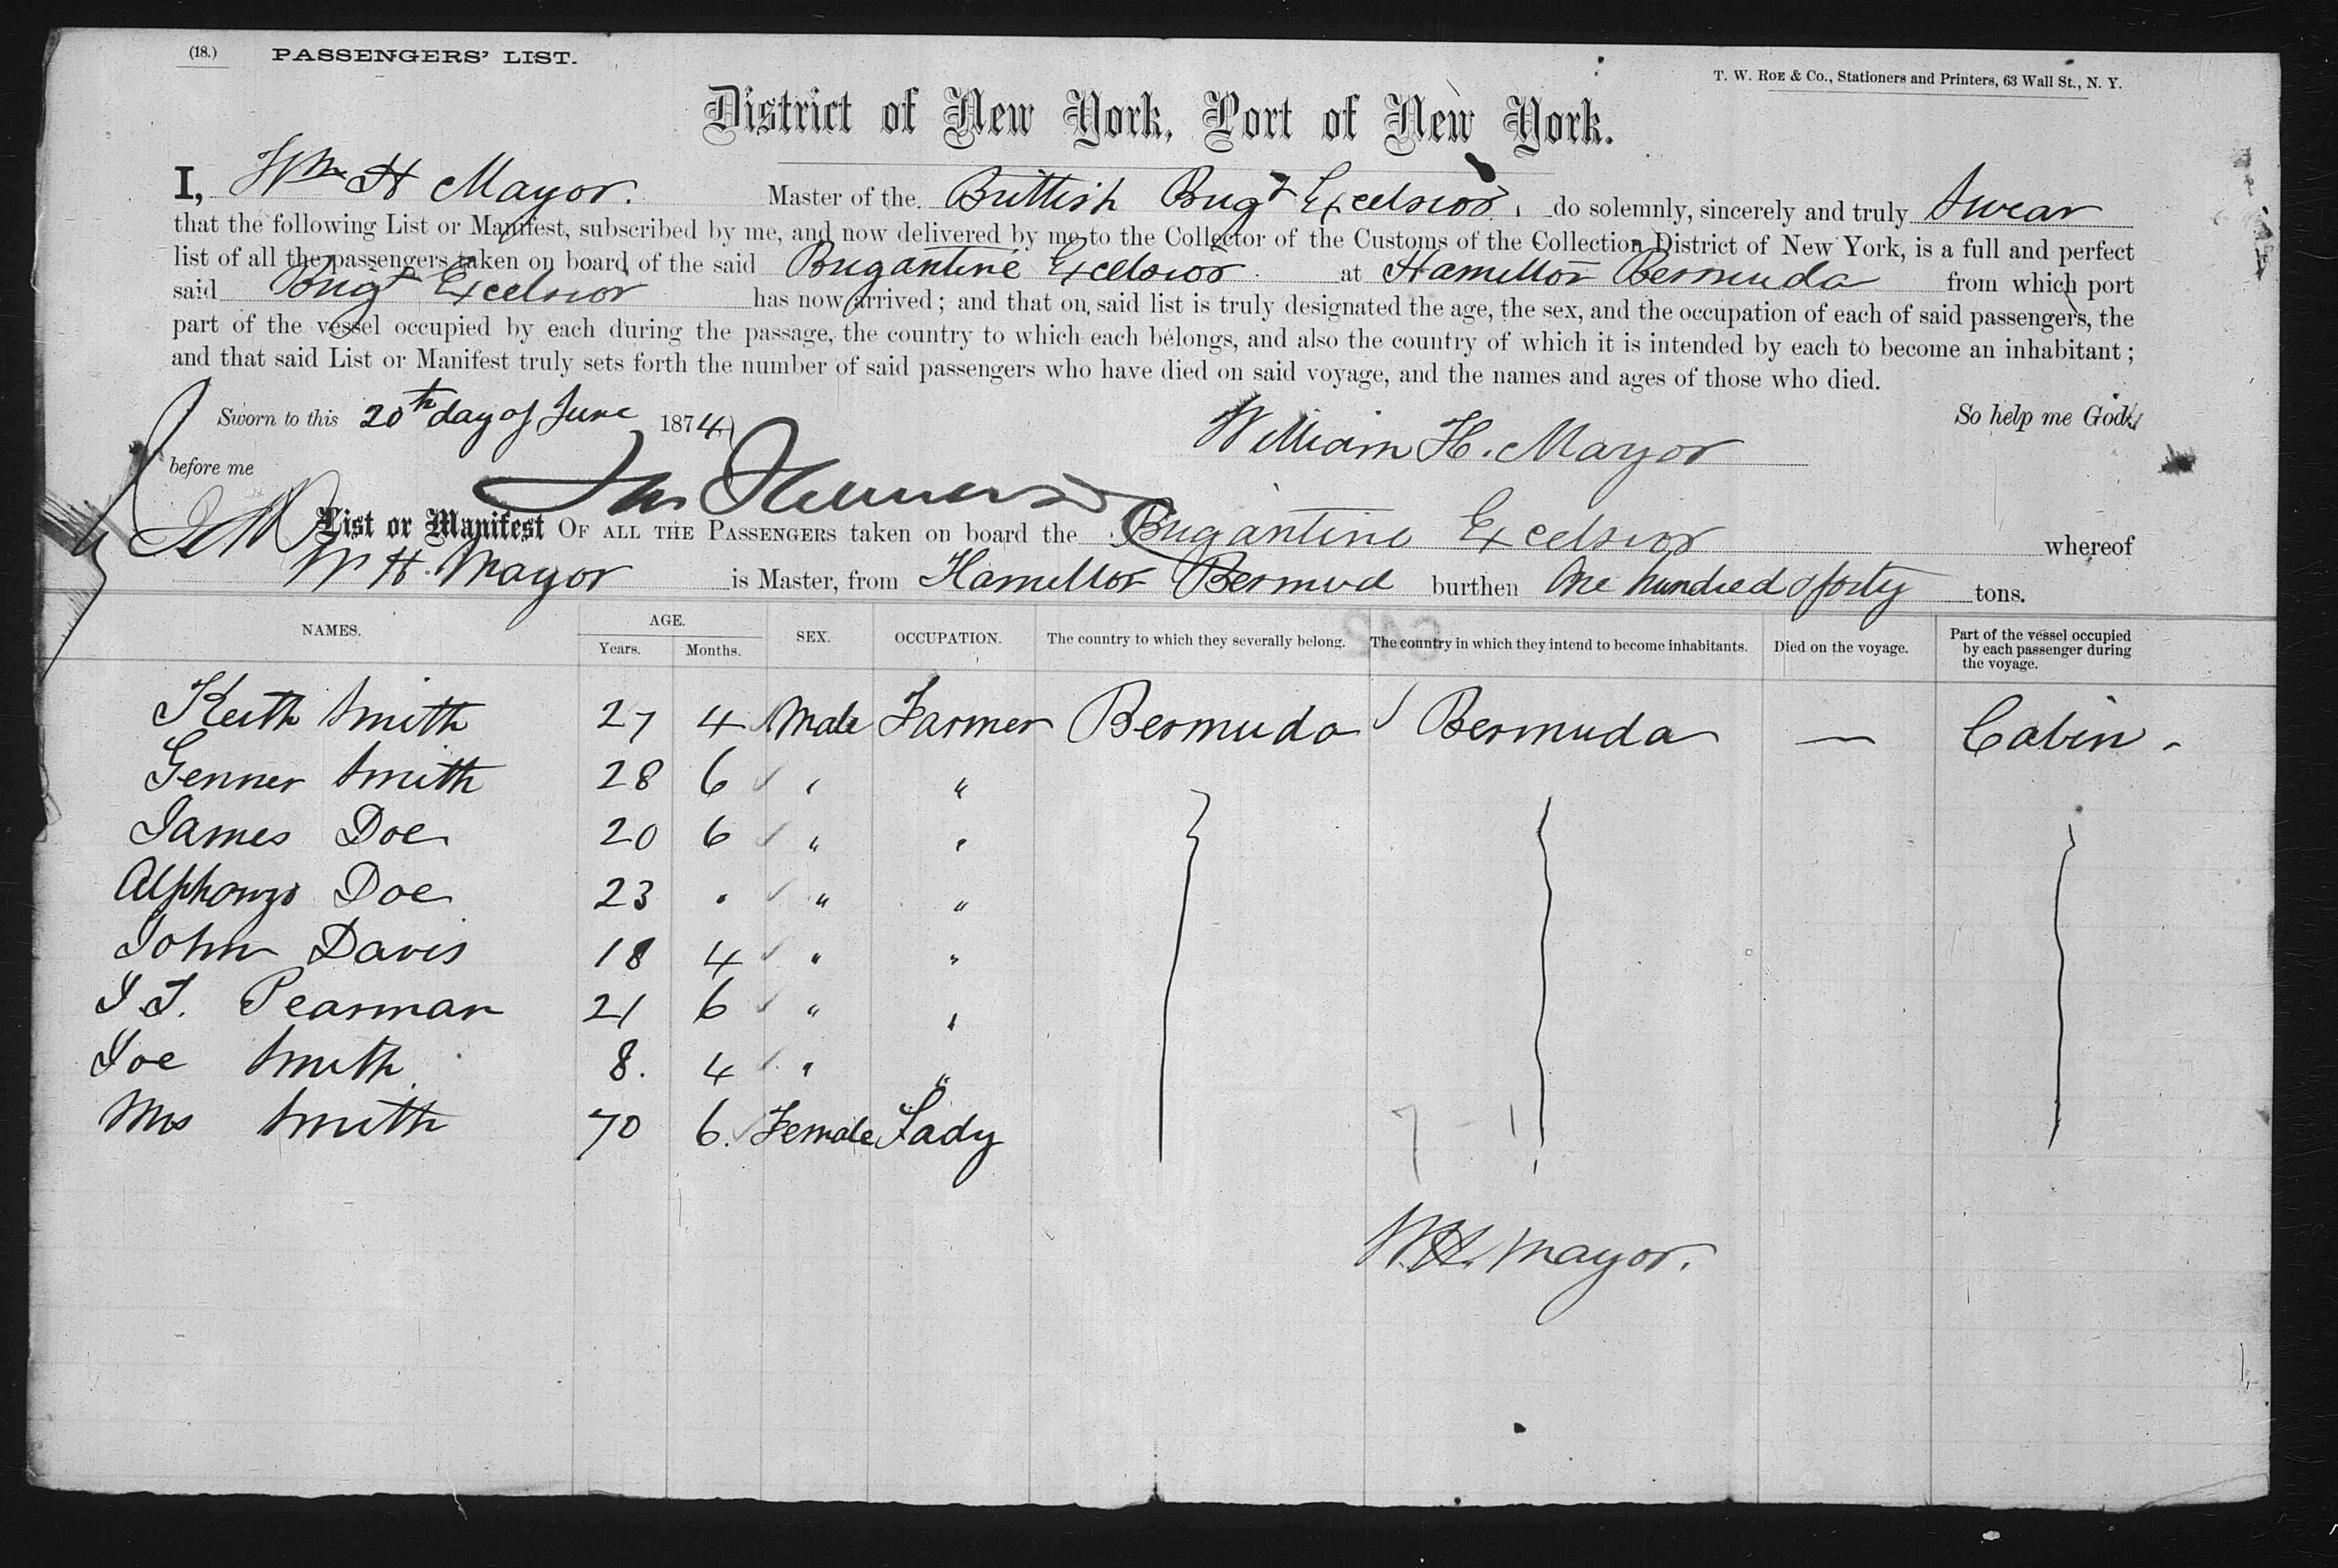 (18.) PASSENGERS' LIST.
T. W. ROE & Co., Stationers and Printers, 63 Wall St., N. Y.
District of New York, Port of New York.
I, Wm H Mayor. Master of the Brittish Brigt Excelsior, do solemnly, sincerely and truly Swear
that the following List or Manifest, subscribed by me, and now delivered by me to the Collector of the Customs of the Collection District of New York, is a full and perfect
list of all the passengers taken on board of the said Brigantine Excelsior at Hamilton Bermuda from which port
said Brigt Excelsior has now arrived; and that on said list is truly designated the age, the sex, and the occupation of each of said passengers, the
part of the vessel occupied by each during the passage, the country to which each belongs, and also the country of which it is intended by each to become an inhabitant;
and that said List or Manifest truly sets forth the number of said passengers who have died on said voyage, and the names and ages of those who died.
Sworn to this 20th day of June 1874 So help me God.
William H. Mayor
before me
List or Manifest OF ALL THE PASSENGERS taken on board the Brigantine Excelsior whereof
W H. Mayor is Master, from Hamilton Bermud burthen One hundred & forty tons.
NAMES. AGE. Years. Months. SEX. OCCUPATION. The country to which they severally belong. The country in which they intend to become inhabitants. Died on the voyage. Part of the vessel occupied by each passenger during the voyage.
Keith Smith 27 4 Male Farmer Bermuda Bermuda — Cabin
Genner Smith 28 6 " "
James Doe 20 6 " "
Alphonzo Doe 23 " " "
John Davis 18 4 " "
J. T. Pearman 21 6 " "
Joe Smith 8. 4 " "
Mrs Smith 70 6. Female Lady
W.H. Mayor.